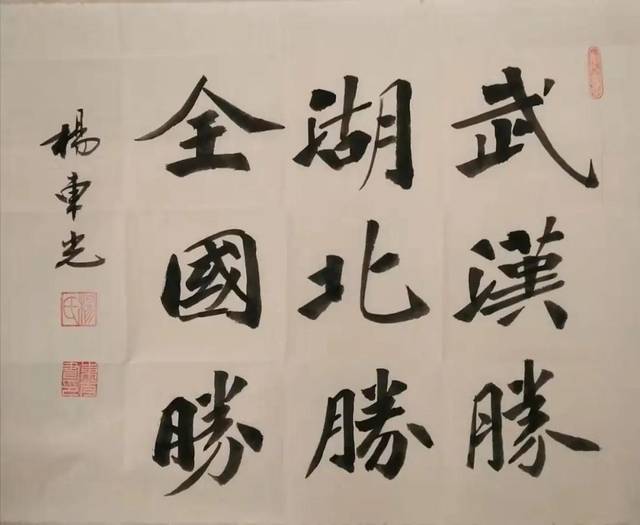 武漢勝
湖北勝
全國勝
楊東光